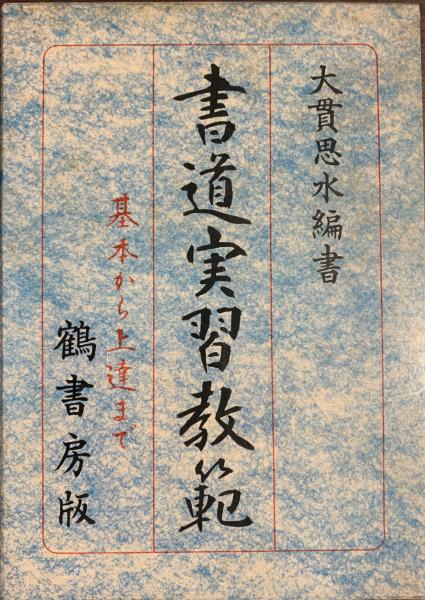 大貫思水編書
書道実習教範
基本から上達まで
鶴書房版